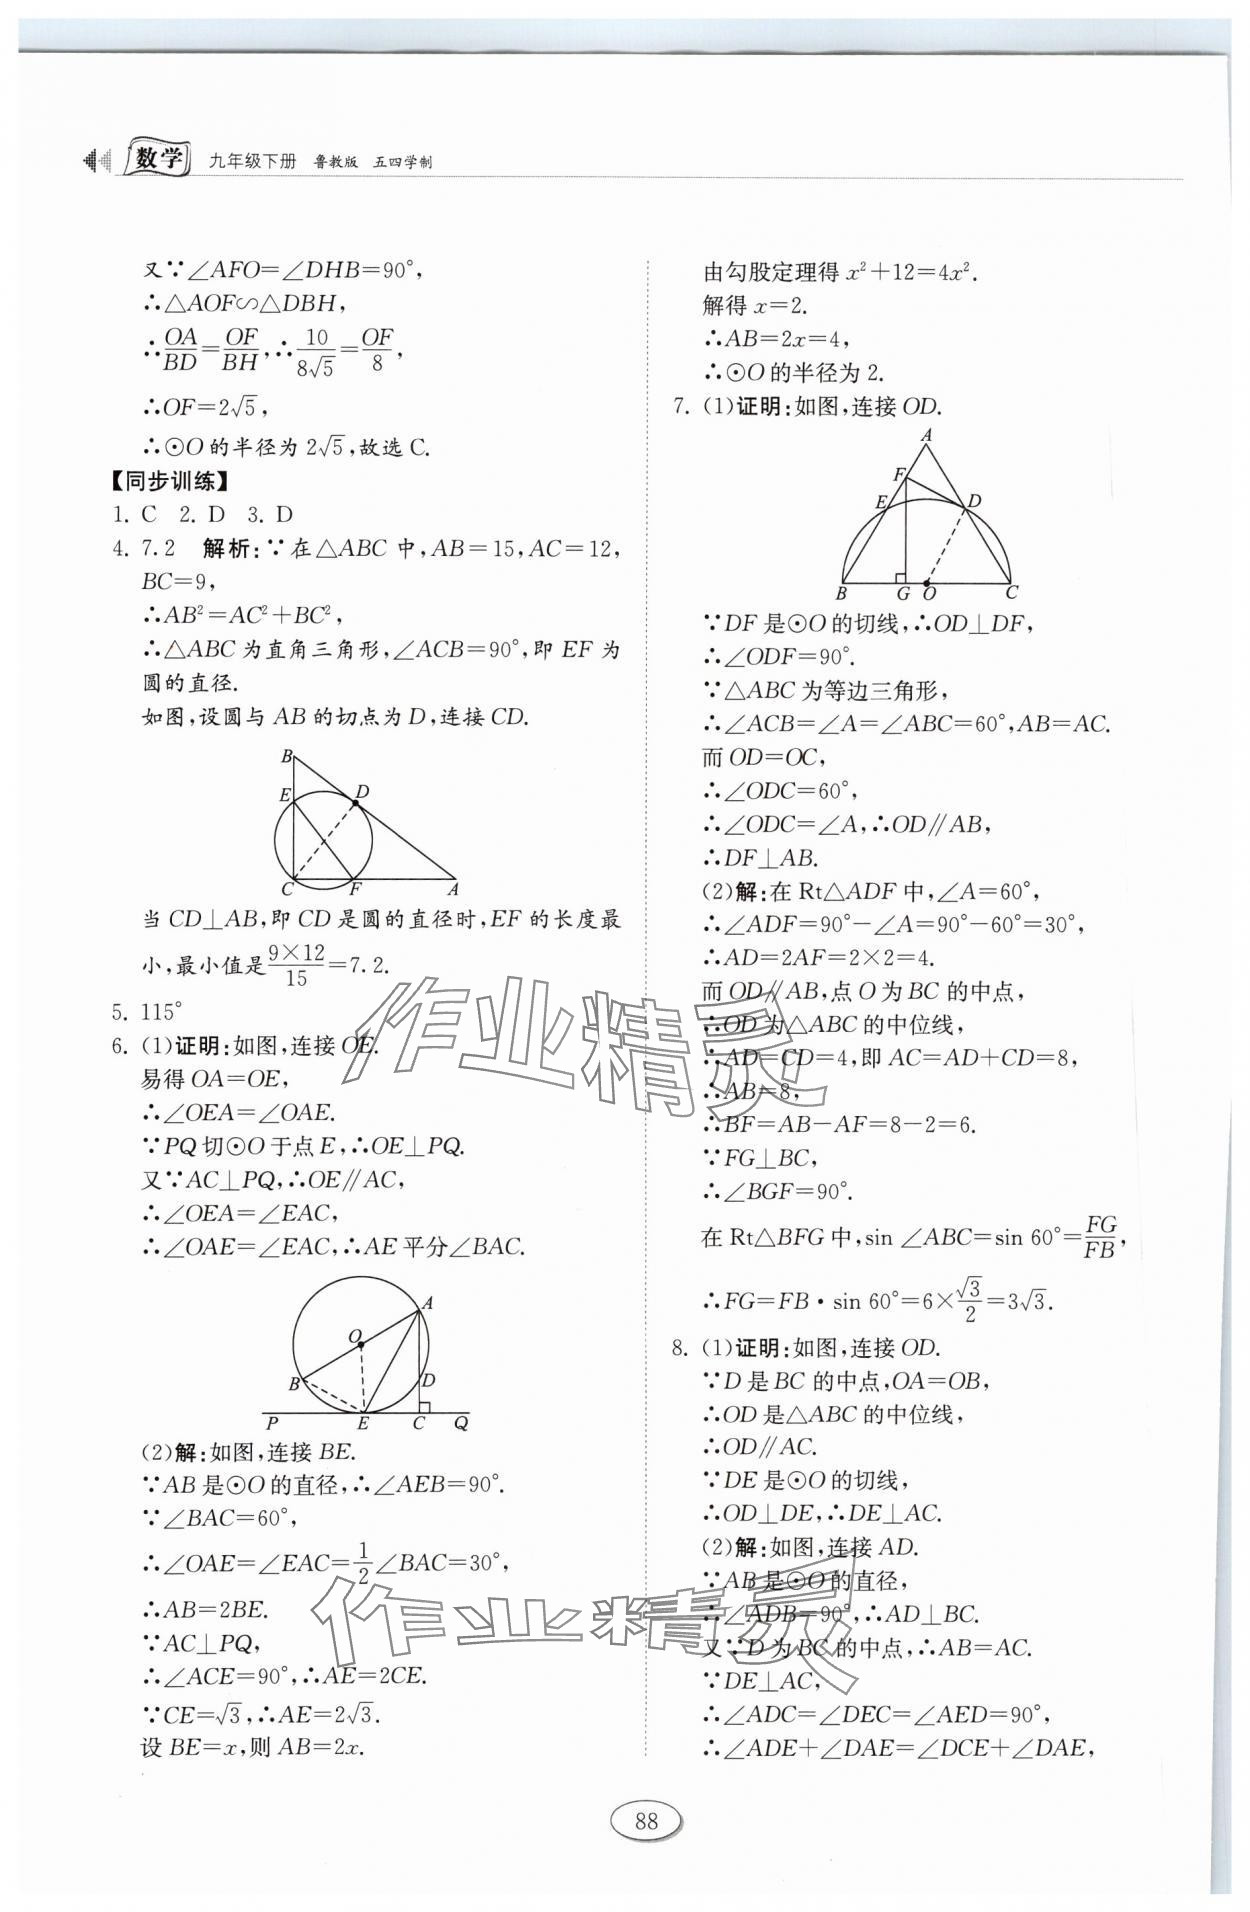 数学 九年级下册 鲁教版 五四学制
又∵∠AFO=∠DHB=90°,
∴△AOF∽△DBH,
∴OA/BD=OF/BH,∴10/8√5=OF/8,
∴OF=2√5,
∴⊙O的半径为2√5,故选C.
【同步训练】
1. C 2. D 3. D
4. 7.2 解析:∵在△ABC中,AB=15,AC=12,
BC=9,
∴AB²=AC²+BC²,
∴△ABC为直角三角形,∠ACB=90°,即EF为
圆的直径.
如图,设圆与AB的切点为D,连接CD.
B
E
D
C
F
A
当CD⊥AB,即CD是圆的直径时,EF的长度最
小,最小值是9×12/15=7.2.
5. 115°
6. (1)证明:如图,连接OE.
易得OA=OE,
∴∠OEA=∠OAE.
∵PQ切⊙O于点E,∴OE⊥PQ.
又∵AC⊥PQ,∴OE∥AC,
∴∠OEA=∠EAC,
∴∠OAE=∠EAC,∴AE平分∠BAC.
A
O
B
D
P
E
C
Q
(2)解:如图,连接BE.
∵AB是⊙O的直径,∴∠AEB=90°.
∵∠BAC=60°,
∴∠OAE=∠EAC=1/2∠BAC=30°,
∴AB=2BE.
∵AC⊥PQ,
∴∠ACE=90°,∴AE=2CE.
∵CE=√3,∴AE=2√3.
设BE=x,则AB=2x.
由勾股定理得x²+12=4x².
解得x=2.
∴AB=2x=4,
∴⊙O的半径为2.
7. (1)证明:如图,连接OD.
A
F
E
D
B
G
O
C
∵DF是⊙O的切线,∴OD⊥DF,
∴∠ODF=90°.
∵△ABC为等边三角形,
∴∠ACB=∠A=∠ABC=60°,AB=AC.
而OD=OC,
∴∠ODC=60°,
∴∠ODC=∠A,∴OD∥AB,
∴DF⊥AB.
(2)解:在Rt△ADF中,∠A=60°,
∴∠ADF=90°-∠A=90°-60°=30°,
∴AD=2AF=2×2=4.
而OD∥AB,点O为BC的中点,
∴OD为△ABC的中位线,
∴AD=CD=4,即AC=AD+CD=8,
∴AB=8,
∴BF=AB-AF=8-2=6.
∵FG⊥BC,
∴∠BGF=90°.
在Rt△BFG中,sin ∠ABC=sin 60°=FG/FB,
∴FG=FB·sin 60°=6×√3/2=3√3.
8. (1)证明:如图,连接OD.
∵D是BC的中点,OA=OB,
∴OD是△ABC的中位线,
∴OD∥AC.
∵DE是⊙O的切线,
∴OD⊥DE,∴DE⊥AC.
(2)解:如图,连接AD.
∵AB是⊙O的直径,
∴∠ADB=90°,∴AD⊥BC.
又∵D为BC的中点,∴AB=AC.
∵DE⊥AC,
∴∠ADC=∠DEC=∠AED=90°,
∴∠ADE+∠DAE=∠DCE+∠DAE,
88
作业精灵
作业精灵